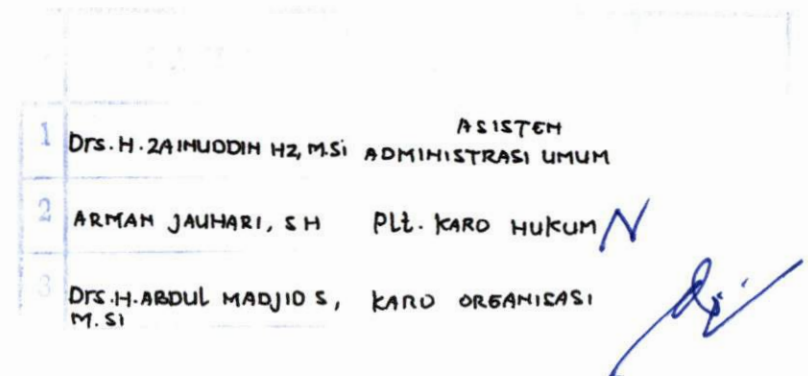 ASISTEN
1 Drs. H. ZAINUDDIN HZ, M.Si ADMINISTRASI UMUM
2 ARMAN JAUHARI, SH Plt. KARO HUKUM
3 Drs. H. ABDUL MADJID S, KARO ORGANISASI
M. Si